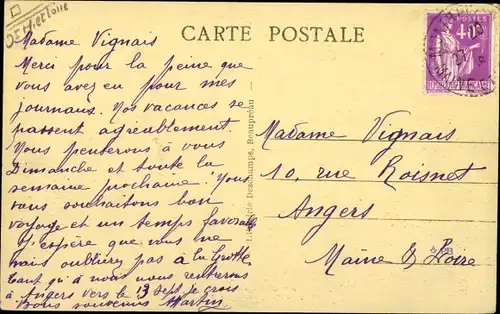 Madame Vignais
Merci pour la peine que
vous avez eu pour mes
journaux. Nos vacances se
passent agréablement.
Nous penserons à vous
Dimanche et toute la
semaine prochaine. Nous
vous souhaitons bon
voyage et un temps favorable
J'espère que vous ne
nous oublirez pas à la Grotte
tant qu'à nous nous rentrerons
à Angers vers le 13 Sept je crois
Bons souvenirs Martin
CARTE POSTALE
Deschamps, Beaupréau
POSTES
40
Madame Vignais
10, rue Roisnet
Angers
Maine & Loire